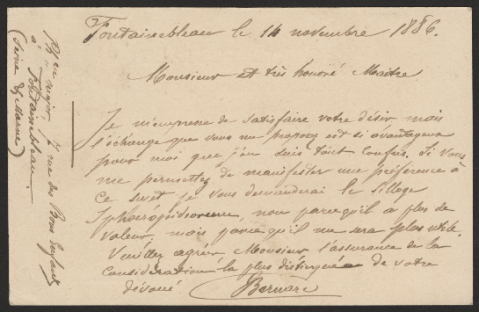 Fontainebleau le 14 novembre 1886.
Monsieur et très honoré Maître
Je m'empresse de satisfaire votre désir mais
l'échange que vous me proposez est si avantageux
pour moi que j'en suis tout confus. Si vous
me permettez de manifester une préférence à
ce sujet je vous demanderai le Sylloge
non parce qu'il a plus de
valeur, mais parce qu'il me sera plus utile
Veuillez agréer Monsieur l'assurance de la
considération la plus distinguée de votre
dévoué Bernard
major, rue des Bons Enfants
à Fontainebleau.
(Seine & Marne)